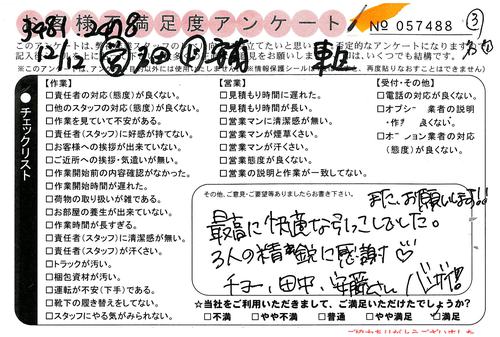 お客様不満足度アンケート
No 057488
③
12/12
チェックリスト
【作業】
□責任者の対応(態度)が良くない。
□他のスタッフの対応(態度)が良くない。
□作業を見ていて不安がある。
□責任者(スタッフ)に好感が持てない。
□お客様への挨拶が出来ていない。
□ご近所への挨拶・気遣いが無い。
□作業開始前の内容確認がなかった。
□作業開始時間が遅れた。
□荷物の取り扱いが雑である。
□お部屋の養生が出来ていない。
□作業時間が長すぎる。
□責任者(スタッフ)に清潔感が無い。
□責任者(スタッフ)が汗くさい。
□トラックが汚い。
□梱包資材が汚い。
□運転が不安(下手)である。
□靴下の履き替えをしてない。
□スタッフにやる気がみられない。
【営業】
□見積もりに遅れた。
□見積もり時間が長い。
□営業マンに清潔感が無い。
□営業マンが煙草くさい。
□営業マンが汗くさい。
□営業態度が良くない。
□営業の説明と作業が一致してない。
【受付・その他】
□電話の対応が良くない。
□オプション業者の対応
(態度)が良くない。
その他、ご意見・ご要望等ありましたらお書き下さい。
また、お願いします!!
最高に快適な引っこしでした。
3人の精鋭に感謝♡
チョー、田中、安藤さん
☆当社をご利用いただきまして、ご満足いただけたでしょうか?
□不満 □やや不満 □普通 □やや満足 □満足
ご協力ありがとうございました